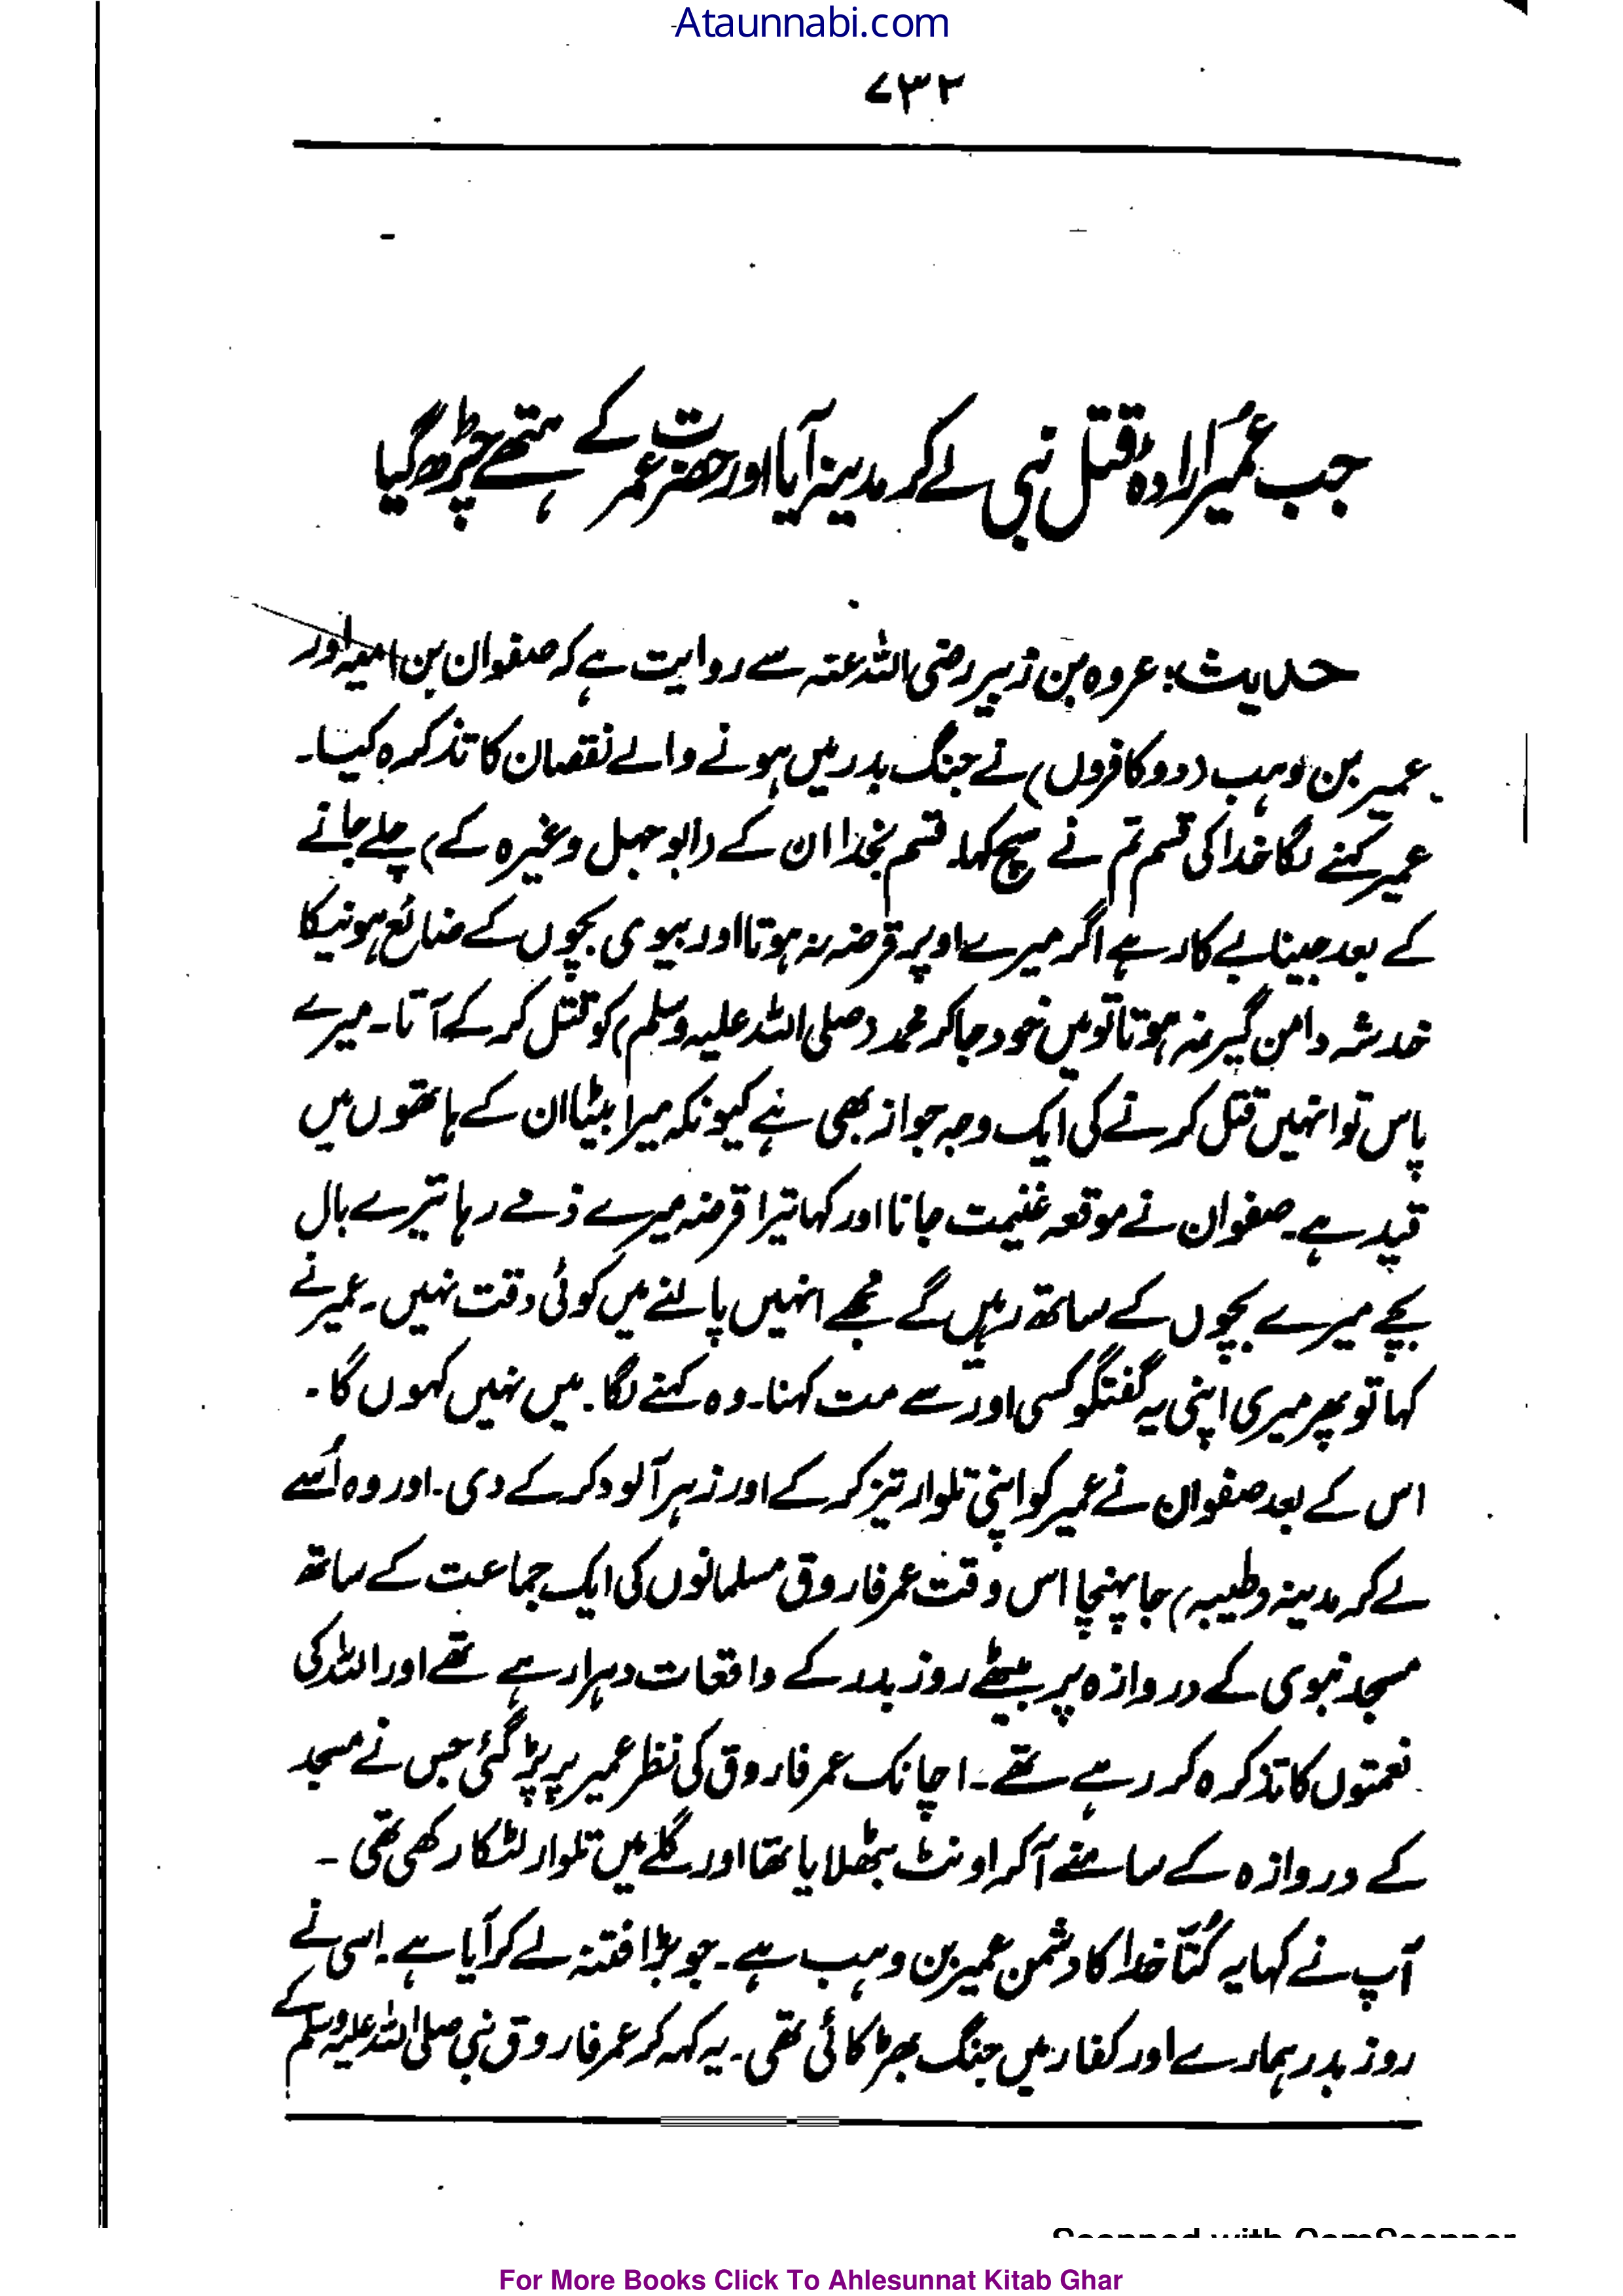 Ataunnabi.com
۷۳۲
جب عمیر ارادۂ قتل نبی لے کر مدینہ آیا اور حضرت عمر کے ہتھے چڑھ گیا
حدیث: عروہ بن زبیر رضی اللہ عنہ سے روایت ہے کہ صفوان بن امیہ اور
عمیر بن وہب (دو کافروں) نے جنگ بدر میں ہونے والے نقصان کا تذکرہ کیا۔
عمیر کہنے لگا خدا کی قسم تم نے سچ کہا۔ قسم بخدا ان کے (ابوجہل وغیرہ کے) چلے جانے
کے بعد جینا بے کار ہے اگر میرے اوپر قرضہ نہ ہوتا اور بیوی بچوں کے ضائع ہونیکا
خدشہ دامن گیر نہ ہوتا تو میں خود جا کر محمد (صلی اللہ علیہ وسلم) کو قتل کر کے آتا۔ میرے
پاس تو انہیں قتل کرنے کی ایک وجہ جواز بھی ہے کیونکہ میرا بیٹا ان کے ہاتھوں میں
قید ہے۔ صفوان نے موقعہ غنیمت جانا اور کہا تیرا قرضہ میرے ذمے رہا تیرے بال
بچے میرے بچوں کے ساتھ رہیں گے مجھے انہیں پالنے میں کوئی دقت نہیں۔ عمیر نے
کہا تو پھر میری اپنی یہ گفتگو کسی اور سے مت کہنا۔ وہ کہنے لگا۔ میں نہیں کہوں گا۔
اس کے بعد صفوان نے عمیر کو اپنی تلوار تیز کر کے اور زہر آلود کر کے دی۔ اور وہ اُسے
لے کر مدینہ (طیبہ) جا پہنچا اس وقت عمر فاروق مسلمانوں کی ایک جماعت کے ساتھ
مسجد نبوی کے دروازہ پر بیٹھے روز بدر کے واقعات دہرا رہے تھے اور اللہ کی
نعمتوں کا تذکرہ کر رہے تھے۔ اچانک عمر فاروق کی نظر عمیر پر پڑ گئی جس نے مسجد
کے دروازہ کے سامنے آ کر اونٹ بٹھلایا تھا اور گلے میں تلوار لٹکا رکھی تھی۔
آپ نے کہا یہ کُتّا خدا کا دشمن عمیر بن وہب ہے۔ جو بڑا فتنہ لے کر آیا ہے۔ اسی نے
روز بدر ہمارے اور کفار میں جنگ بھڑکائی تھی۔ یہ کہہ کر عمر فاروق نبی صلی اللہ علیہ وسلم کے
Scanned with CamScanner
For More Books Click To Ahlesunnat Kitab Ghar